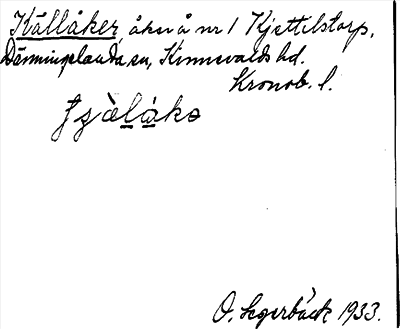 Källåker, åker å nr 1 Kjettilstorp,
Dänningelanda sn, Kinnevalds hd.
Kronob. l.
O. Segerbäck 1933.